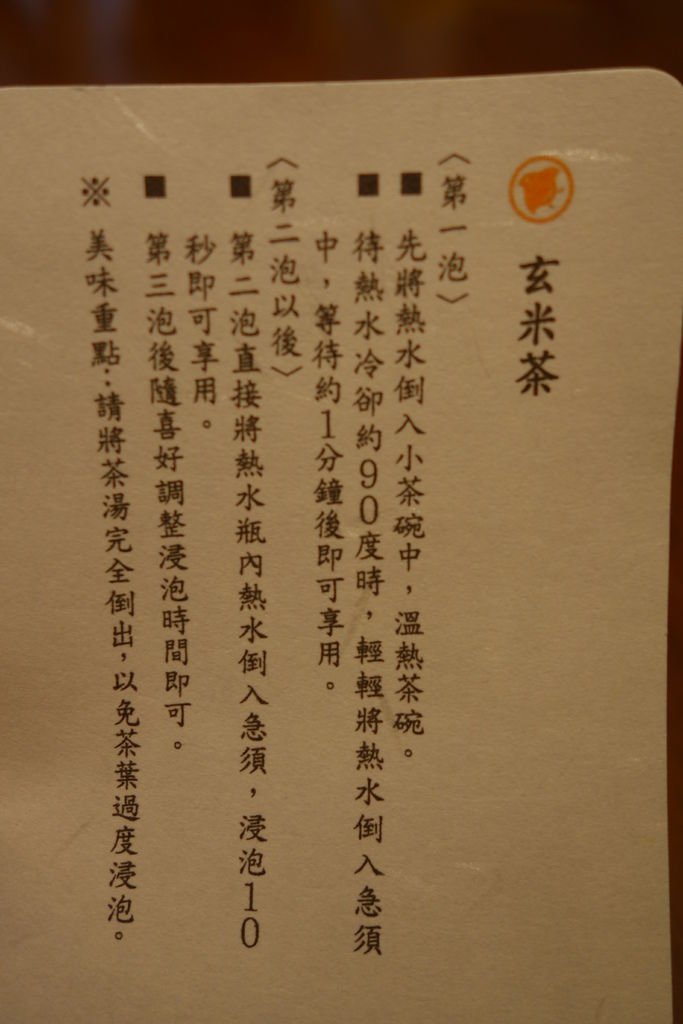 玄米茶
〈第一泡〉
■ 先將熱水倒入小茶碗中，溫熱茶碗。
■ 待熱水冷卻約90度時，輕輕將熱水倒入急須
中，等待約1分鐘後即可享用。
〈第二泡以後〉
■ 第二泡直接將熱水瓶內熱水倒入急須，浸泡10
秒即可享用。
■ 第三泡後隨喜好調整浸泡時間即可。
※ 美味重點：請將茶湯完全倒出，以免茶葉過度浸泡。